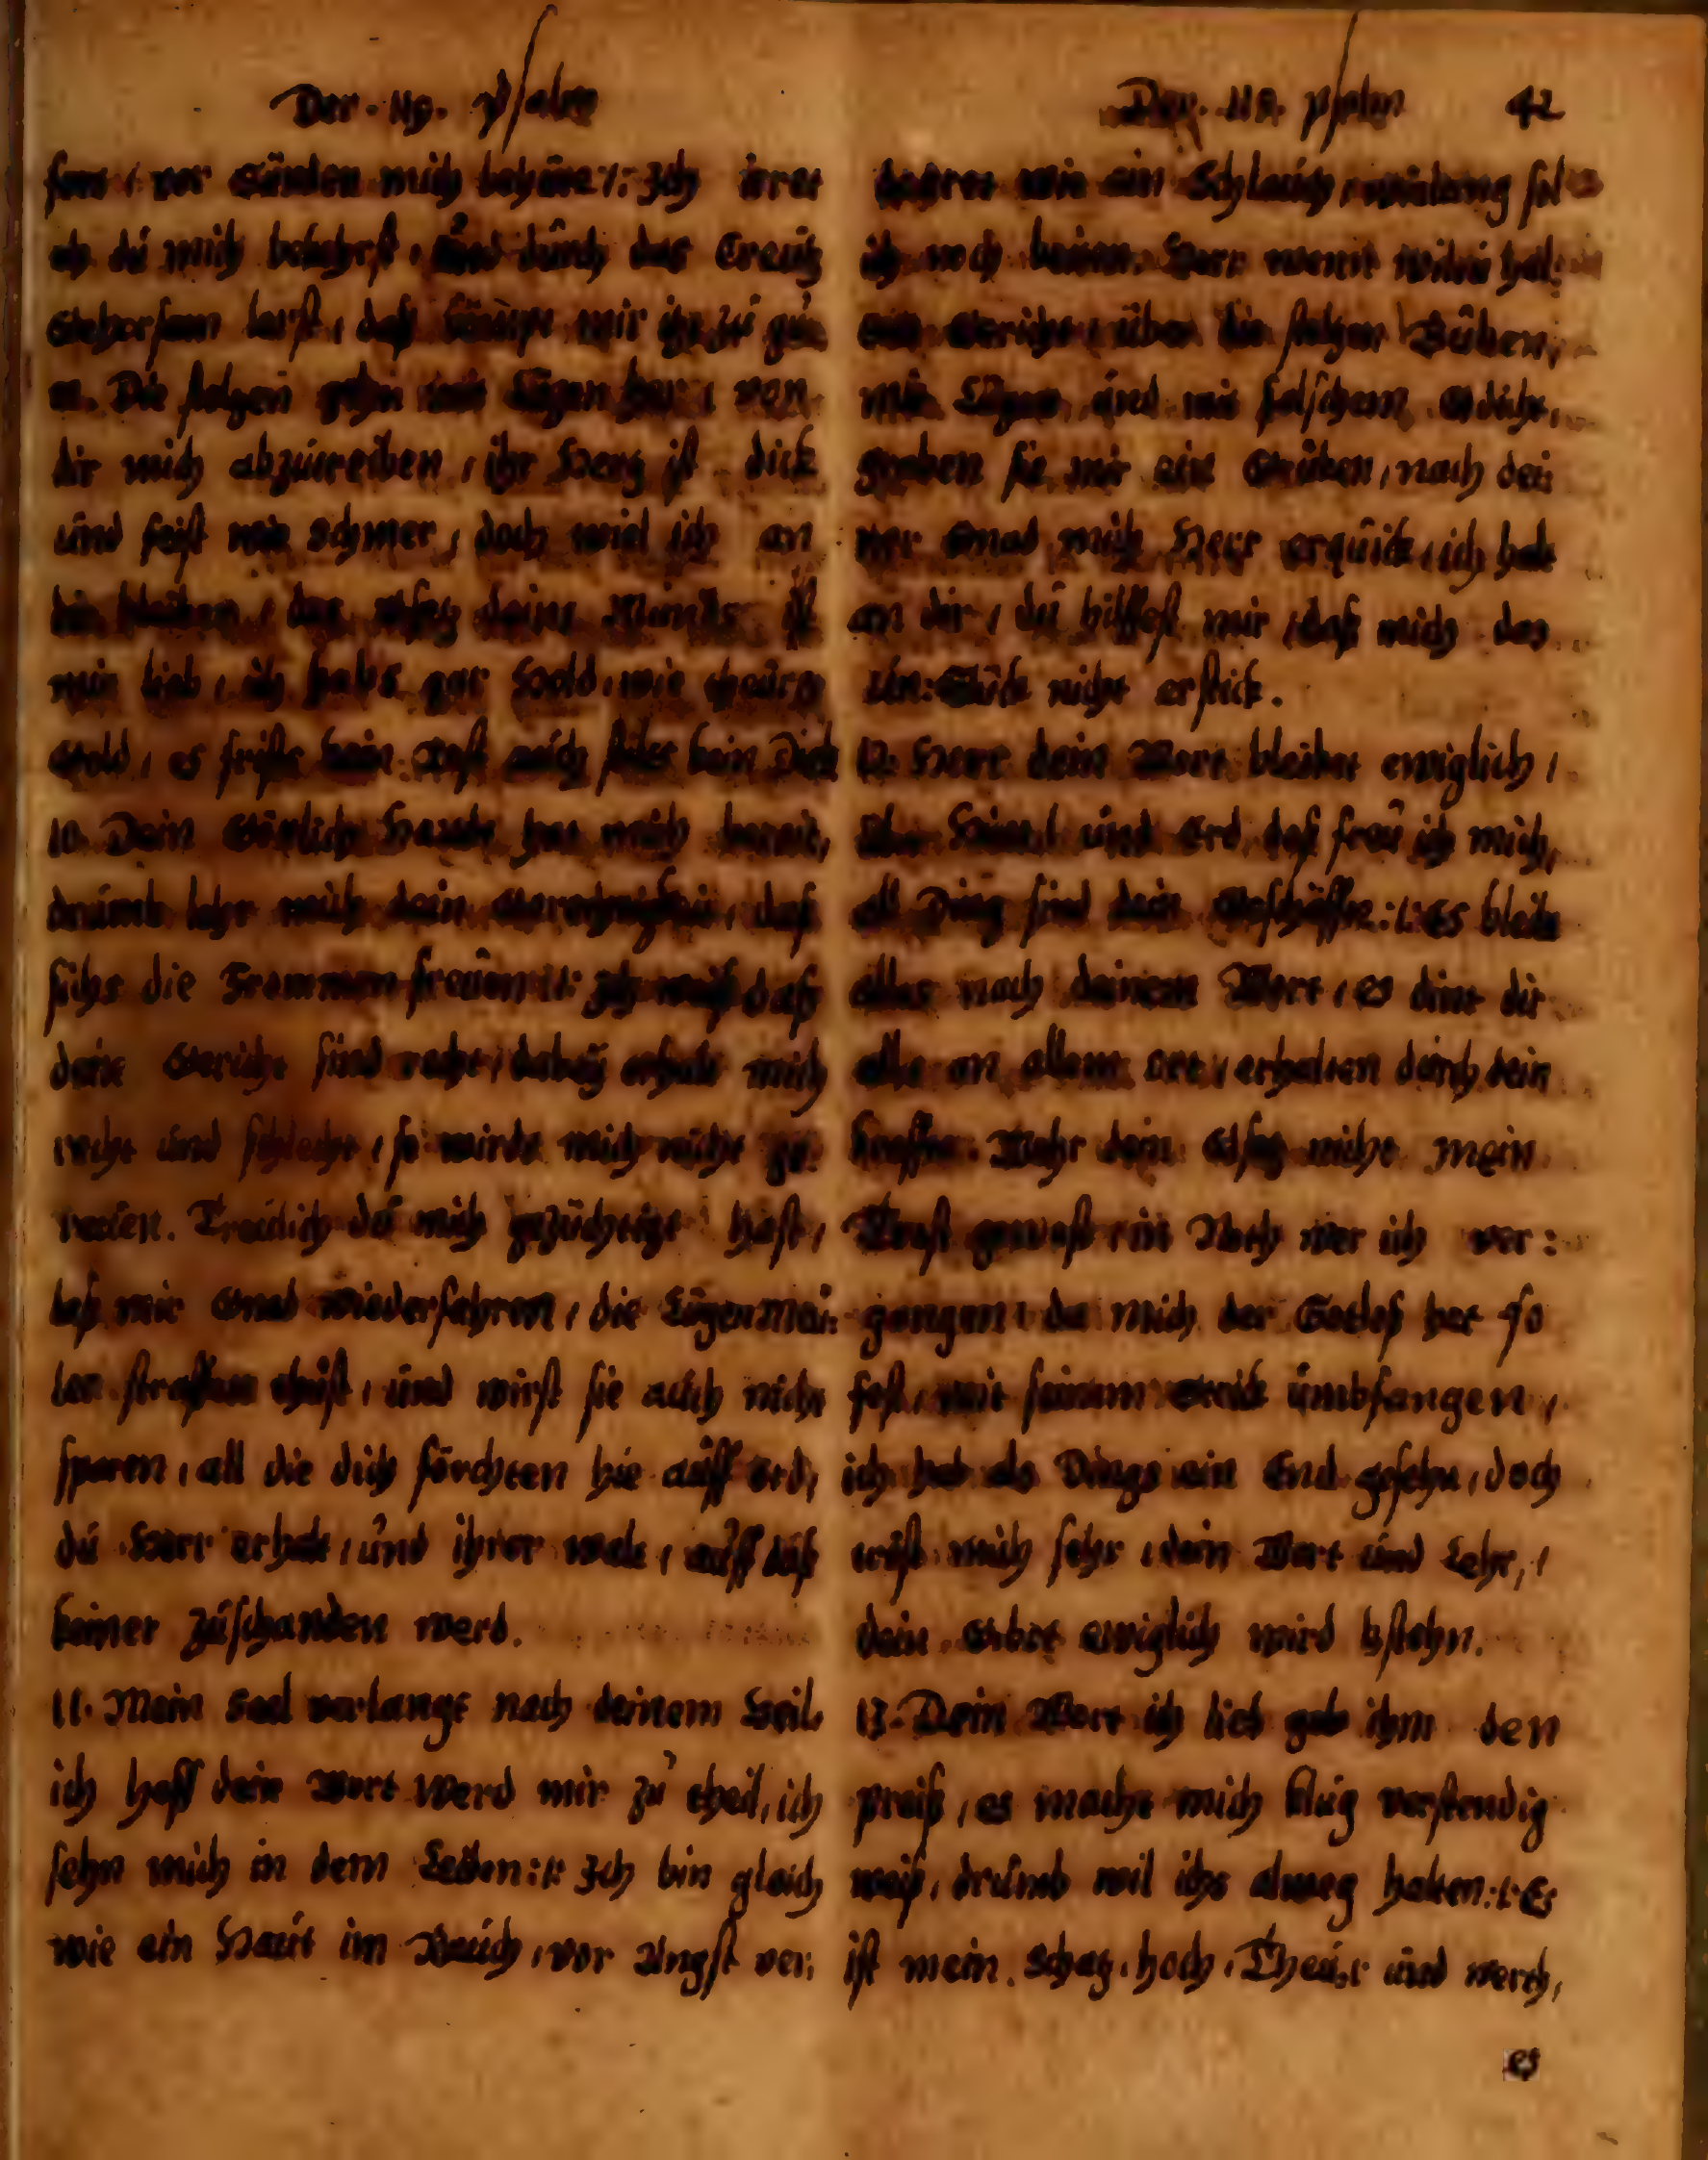 Der. 119. Psalm
vor Sünden mich behüte :/: Ich irret
eh dú mich , únd dúrch das Creútz
Gehorsam , daß mir zú gú:
te. Die stoltzen gehn mit Lügen her , von
dir mich abzútreiben , ihr Hertz ist dick
únd feist wie Schmer , doch wiel ich an
dir bleiben , das Gsetz deins Múndts ist
mir lieb , ich habs gar Hold , wie theúres
Gold , es frist kein Rost aúch stilts kein Dieb
10. Dein Göttlich Hande hat mich bereit,
drúmb lehr mich dein Gerechtigkeit, daß
sichs die Frommen freúen :/: Ich weiß daß
deine Gericht sind recht , dabey erhalt mich
recht únd schlecht , so wirdt mich nicht ge:
reúen. Treúlich dú mich gezüchtigt hast ,
laß mir Gnad wiederfahren , die Lügen Meú:
ler straffen thúst , únd wirst sie aúch nicht
sparen , all die dich förchten hie aúff Erd,
dú Herr erhalt , únd ihrer walt , aúff daß
keiner zúschanden werd.
11. Mein Seel verlangt nach deinem Heil,
ich hoff dein Wort werd mir zú theil, ich
sehn mich in dem Leiden :/: Ich bin gleich
wie ein Haút im Raúch , vor Angst ver:
Der. 119. Psalm 42
wie ein Schlaúch , wielang sol
ich noch . Herr wenn wiltú hal:
ten Gericht , über die stoltzen Búben,
mit Lügen únd mit falschem Gdicht,
graben sie mir ein Grúben , nach dei:
ner Gnad mich Herr erqúick , ich halt
an dir , dú hilffest mir , daß mich das
Un: Glück nicht erstick.
12. Herr dein Wort bleibet ewiglich ,
über Himl únd Erd, deß freú ich mich,
all Ding sind dein Geschäffte :/: Es bleibt
alles nach deinem Wort , es dint dir
alls an allem ort , erhalten dúrch dein
kraffte. Wehr dein Gsetz nicht mein
Trost gewest , in Noth wer ich ver:
gangen , da mich der Gotloß hat so
fest , mit seinem strick úmbfangen ,
ich hab als Dings ein End gesehn , doch
tröst mich sehr , dein Wort únd Lehr, ,
dein Gebot ewiglich wird bstehn.
13. Dein Wort ich lieb geb ihm den
preiß , es macht mich klúg verstendig
weiß , drúmb wil ichs alweg halten :/: Es
ist mein Schatz , hoch , Theúer únd werth ,
es